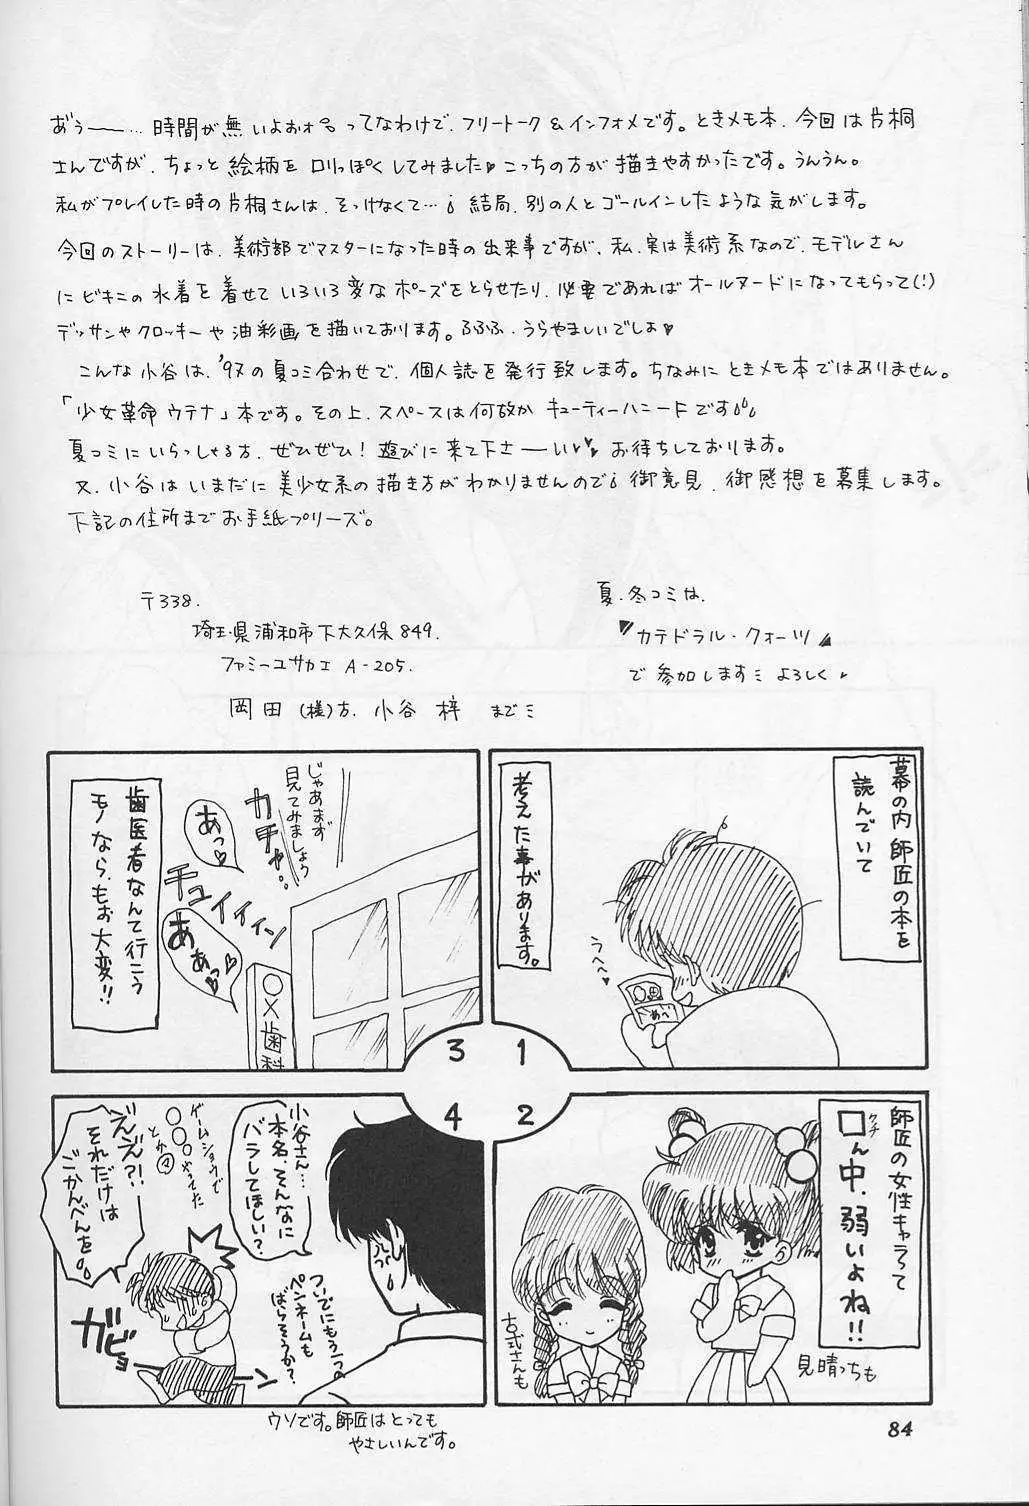 あ゛う――… 時間が無いよおぉ。ってなわけで、フリートーク&インフォメです。ときメモ本、今回は片桐
さんですが、ちょっと絵柄をロリっぽくしてみました♥こっちの方が描きやすかったです。うんうん。
私がプレイした時の片桐さんは、そっけなくて…。結局、別の人とゴールインしたような気がします。
今回のストーリーは、美術部でマスターになった時の出来事ですが、私、実は美術系なので、モデルさん
にビキニの水着を着せていろいろ変なポーズをとらせたり、必要であればオールヌードになってもらって(!)
デッサンやクロッキーや油彩画を描いております。ふふふ、うらやましいでしょ♥
こんな小谷は、'97の夏コミ合わせで、個人誌を発行致します。ちなみにときメモ本ではありません。
「少女革命ウテナ」本です。その上、スペースは何故かキューティーハニードです
夏コミにいらっしゃる方、ぜひぜひ!遊びに来て下さーい♥♥お待ちしております。
又、小谷はいまだに美少女系の描き方がわかりませんので。御意見、御感想を募集します。
下記の住所までお手紙プリーズ。
〒338.
埼玉県浦和市下大久保849.
ファミーユサカエ A-205.
岡田(様)方、小谷 梓 まで
夏、冬コミは、
カテドラル・クォーツ
で参加します よろしく♥
幕の内師匠の本を
読んでいて
考えた事があります。
うへへへ♥
1
師匠の女性キャラって
口ん中、弱いよね!!
クチ
見晴っちも
古式さんも
2
じゃあまず
見てみましょう
カチャ…
あっ♥
チュイイイン
ああっ♥♥
歯医者なんて行こう
モノなら、もお大変!!
○×歯科
3
小谷さん…
本名、そんなに
バラしてほしい?
ついでにもう一つの
ペンネームも
ばらそうか?
ゲームショウで
○○○やってた
とか
ええ?!
それだけは
ごかんべんを。
ガビョーン
4
ウソです。師匠はとっても
やさしいんです。
84